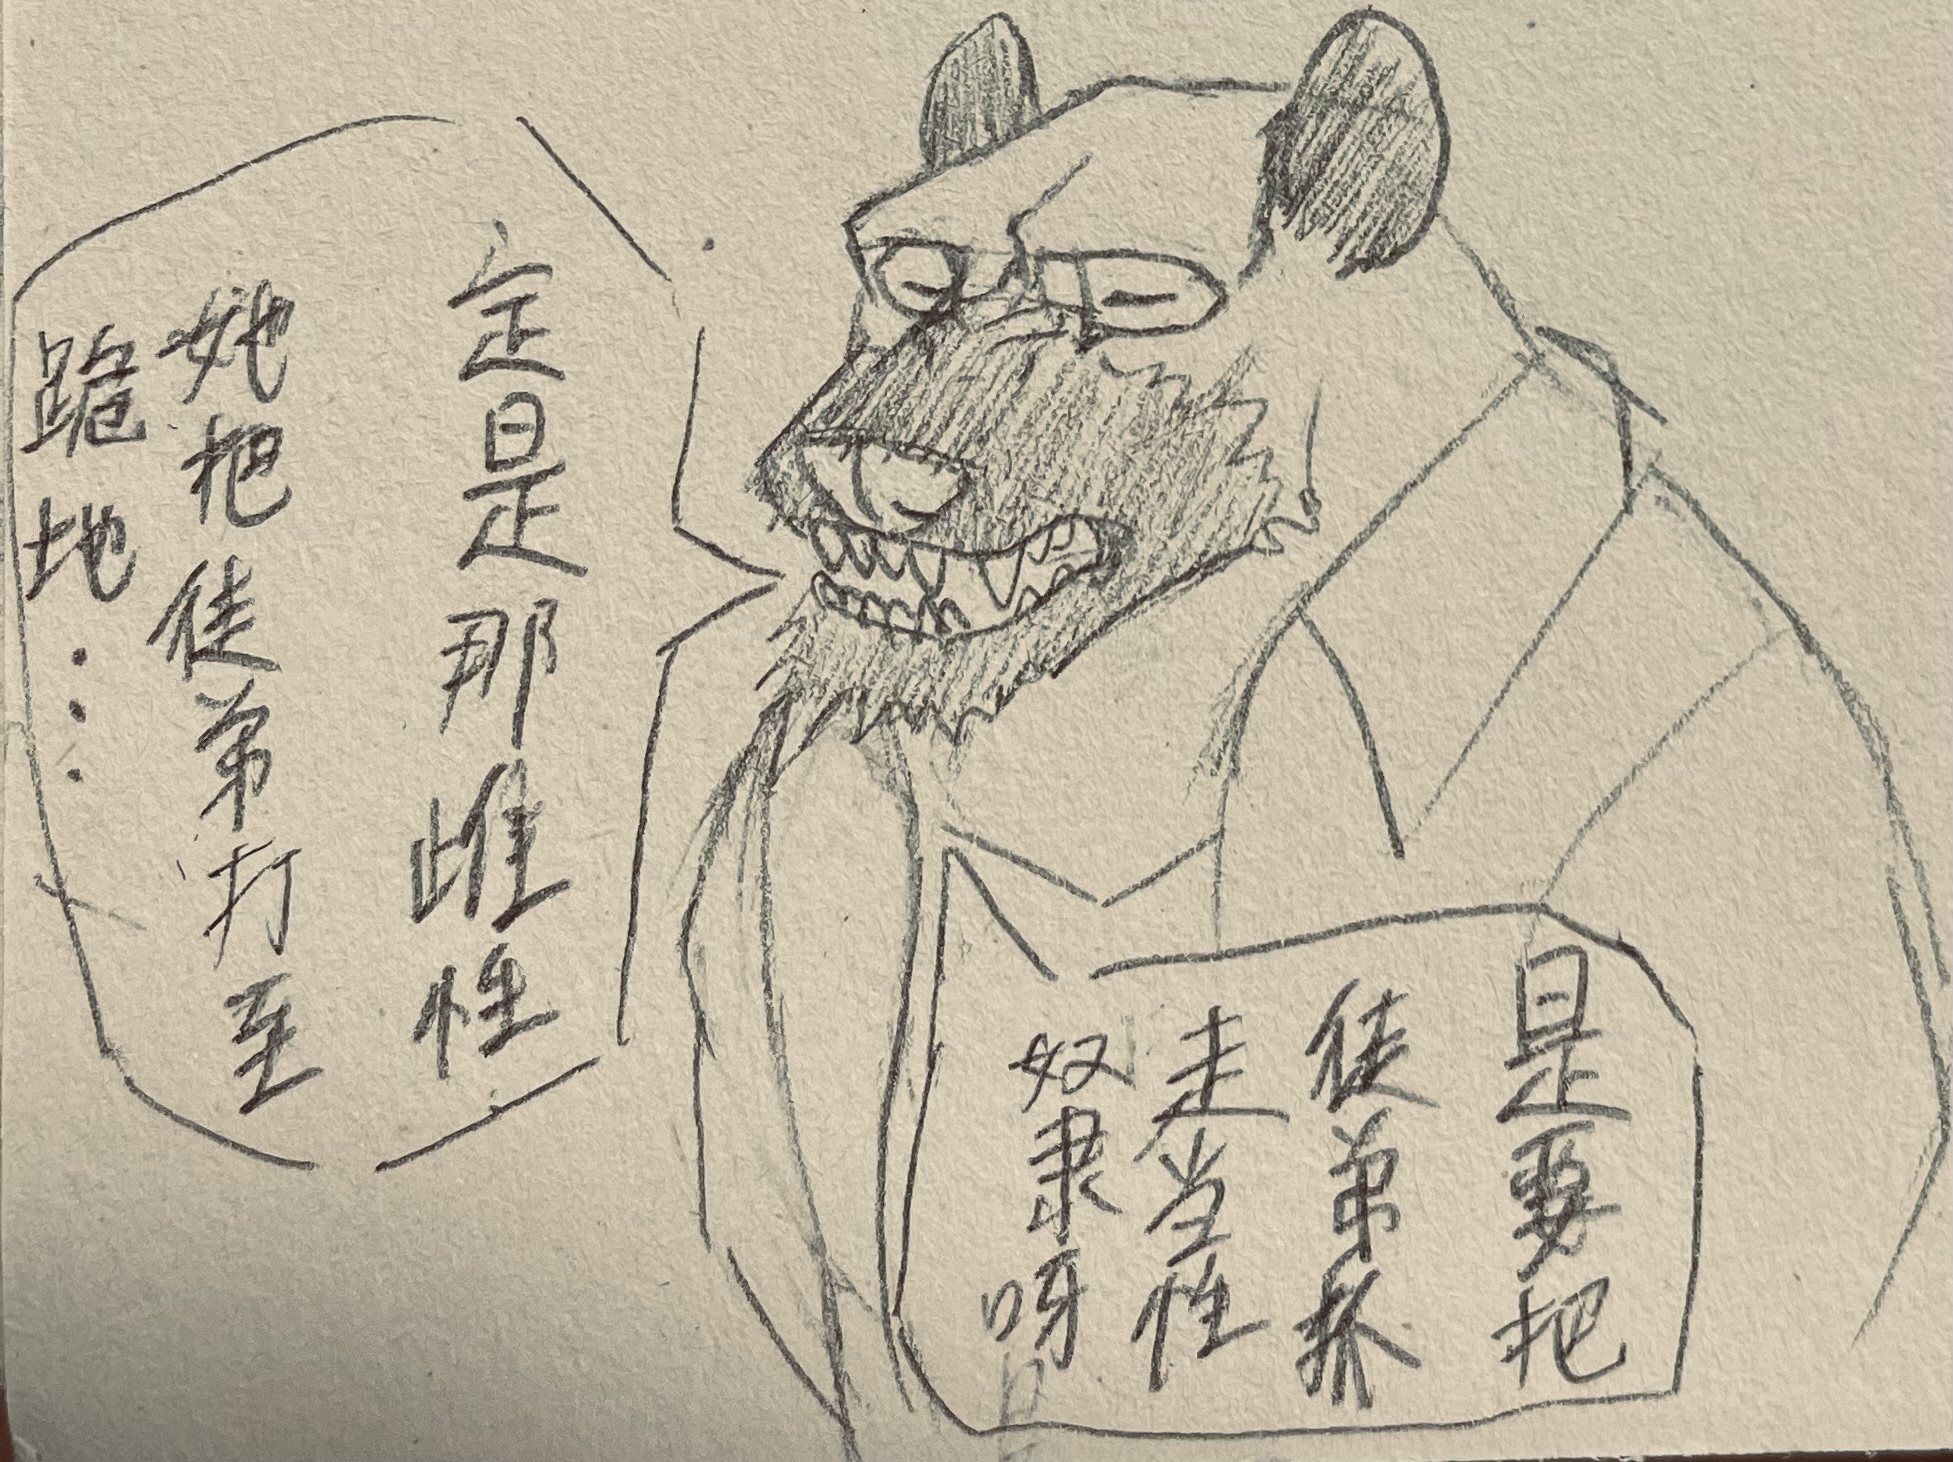 定是那雌性
她把徒弟打至
跪地...
是要把
徒弟抓
走当性
奴隶呀